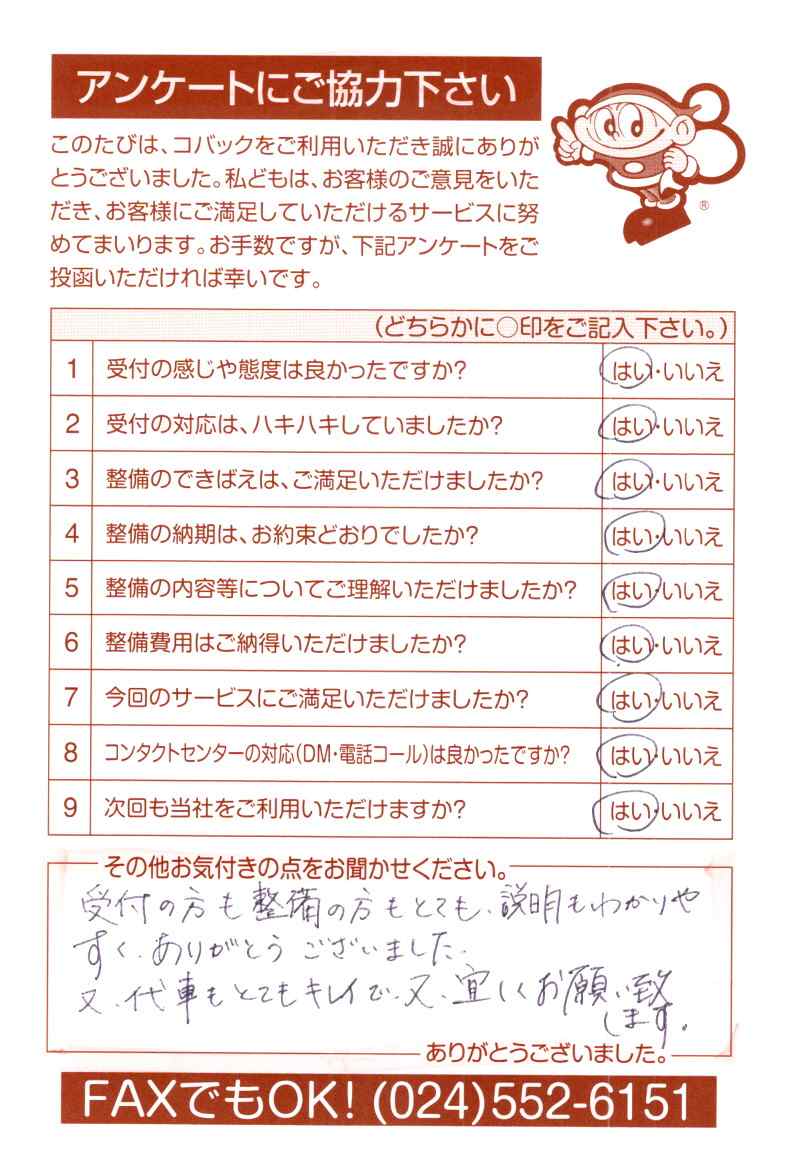 アンケートにご協力下さい
このたびは、コバックをご利用いただき誠にありが
とうございました。私どもは、お客様のご意見をいた
だき、お客様にご満足していただけるサービスに努
めてまいります。お手数ですが、下記アンケートをご
投函いただければ幸いです。
®
(どちらかに○印をご記入下さい。)
1 受付の感じや態度は良かったですか? はい・いいえ
2 受付の対応は、ハキハキしていましたか? はい・いいえ
3 整備のできばえは、ご満足いただけましたか? はい・いいえ
4 整備の納期は、お約束どおりでしたか? はい・いいえ
5 整備の内容等についてご理解いただけましたか? はい・いいえ
6 整備費用はご納得いただけましたか? はい・いいえ
7 今回のサービスにご満足いただけましたか? はい・いいえ
8 コンタクトセンターの対応(DM・電話コール)は良かったですか? はい・いいえ
9 次回も当社をご利用いただけますか? はい・いいえ
その他お気付きの点をお聞かせください。
受付の方も整備の方もとても、説明もわかりや
すく、ありがとうございました。
又、代車もとてもキレイで、又、宜しくお願い致
します。
ありがとうございました。
FAXでもOK! (024)552-6151